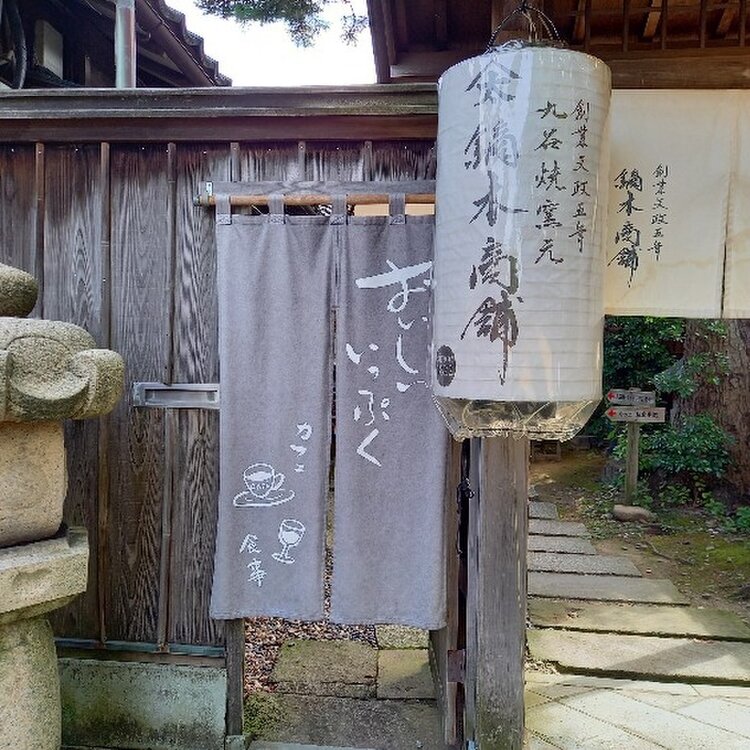 創業文政五年
九谷焼窯元
鏑木商舗
創業文政五年
鏑木商舗
おいしい
いっぷく
カフェ
食事